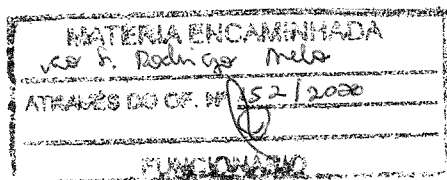 MATÉRIA ENCAMINHADA
Rodrigo Melo
ATRAVÉS DO OF. Nº 152/2020
FUNCIONÁRIO